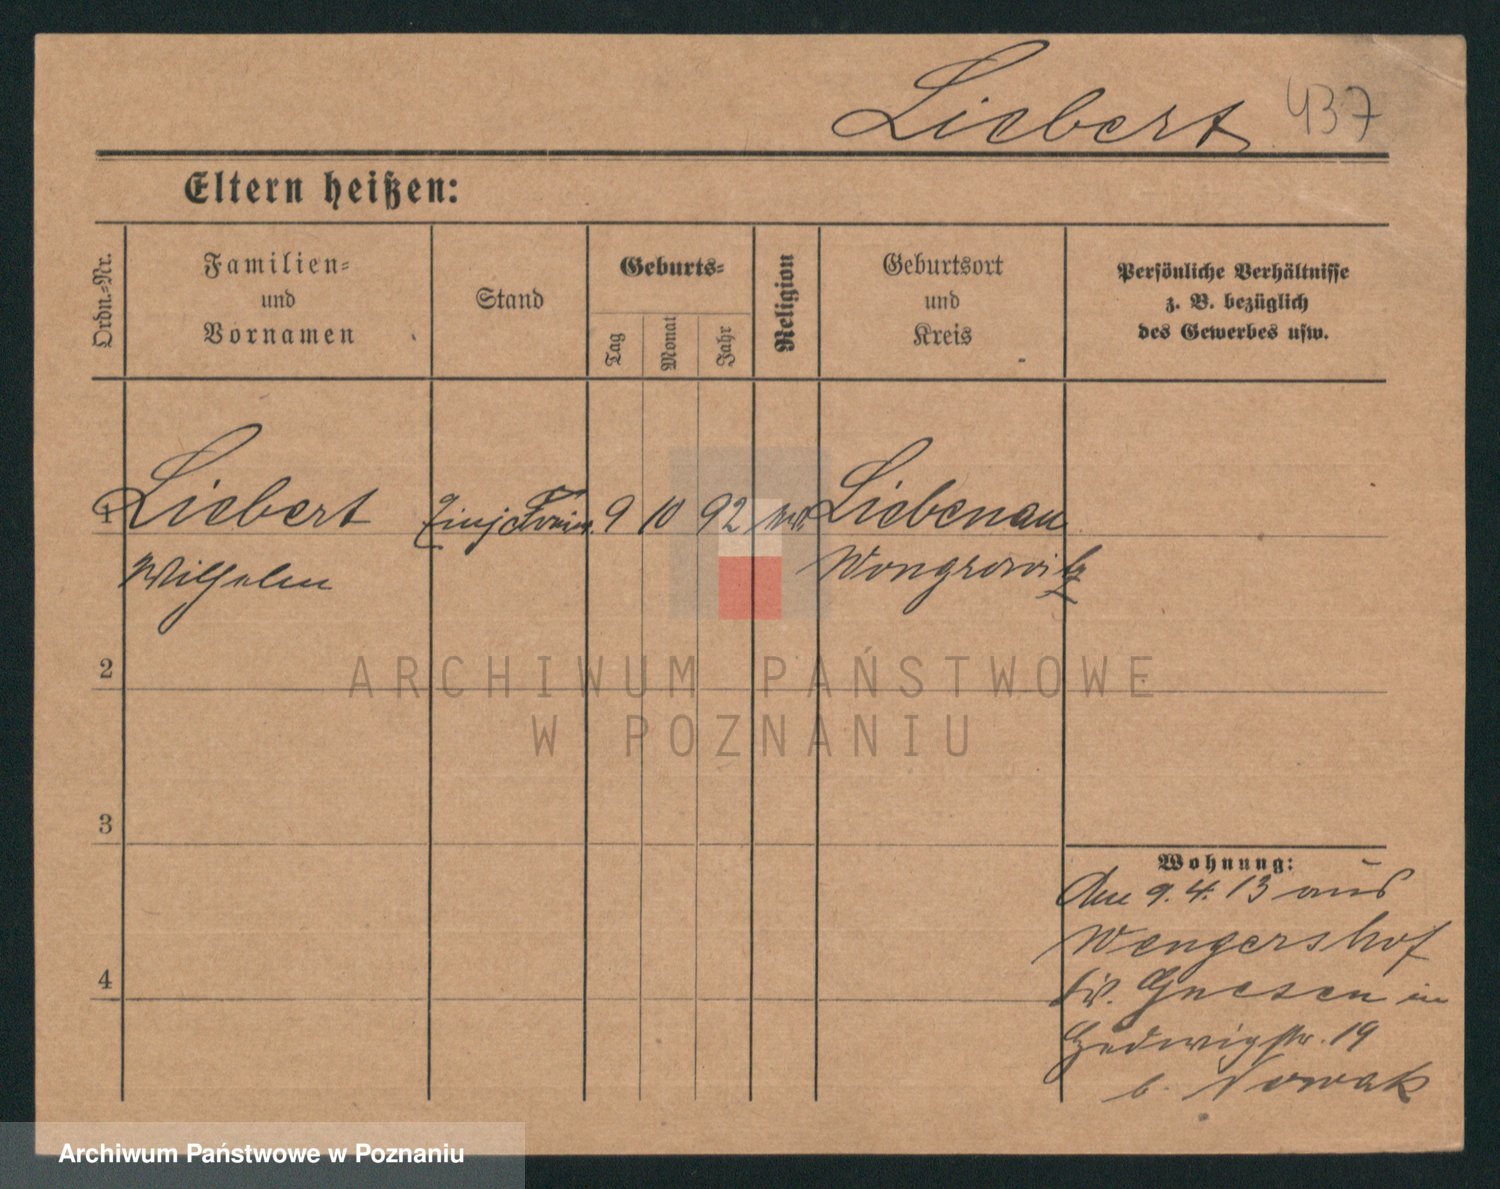 Liebert 437
Eltern heißen:
Ordn.-Nr.
Familien-
und
Vornamen
Stand
Geburts-
Tag
Monat
Jahr
Religion
Geburtsort
und
Kreis
Persönliche Verhältnisse
z. B. bezüglich
des Gewerbes usw.
1 Liebert 9 10 92 Liebenau
Wilhelm Wongrowitz
2
ARCHIWUM PAŃSTWOWE
W POZNANIU
3
Wohnung:
Am 9.4.13 aus
Wengershof
Gnesen in
Hedwigstr. 19
b. Nowak
4
Archiwum Państwowe w Poznaniu